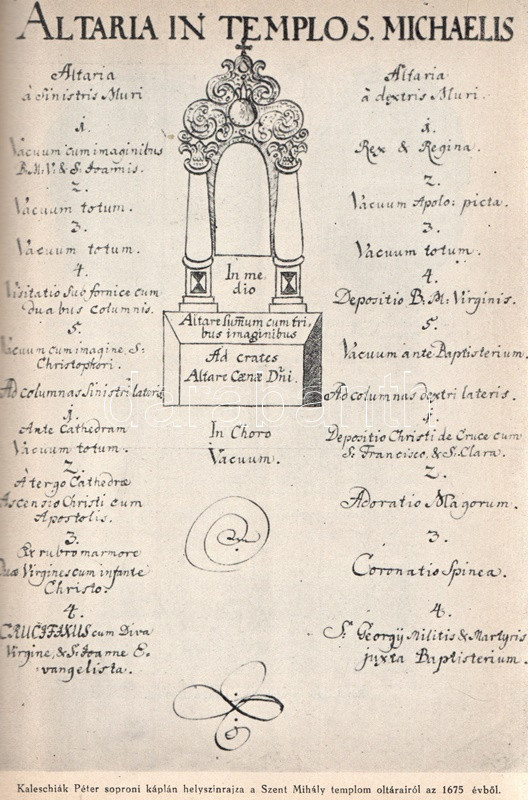 ALTARIA IN TEMPLO S. MICHAELIS
Altaria
à Sinistris Muri
1.
Vacuum cum imaginibus
B. M. V. & S. Joannis.
2.
Vacuum totum.
3.
Vacuum totum.
4.
Visitatio sub fornice cum
duabus columnis.
5.
Vacuum cum imagine S:
Christophori.
Ad columnas Sinistri lateris
1.
Ante Cathedram
Vacuum totum.
2.
A tergo Cathedrae
Ascensio Christi cum
Apostolis.
3.
Ex rubro marmore
Duae Virgines cum infante
Christo.
4.
CRUCIFIXUS cum Diva
Virgine, & S. Joanne E-
vangelista.
In me
dio
Altare Sum̅um cum tri,
bus imaginibus
Ad crates
Altare Cœnæ Dn̅i.
In Choro
Vacuum.
Altaria
à dextris Muri.
1.
Rex & Regina.
2.
Vacuum Apolo: picta.
3.
Vacuum totum.
4.
Depositio B. M: Virginis.
5.
Vacuum ante Baptisterium.
Ad columnas dextri lateris.
1.
Depositio Christi de Cruce cum
S. Francisco, & S. Clara.
2.
Adoratio Magorum.
3.
Coronatio Spinea.
4.
Sti Georgij Militis & Martyris
juxta Baptisterium.
darabanth
Kaleschiák Péter soproni káplán helyszinrajza a Szent Mihály templom oltárairól az 1675 évből.